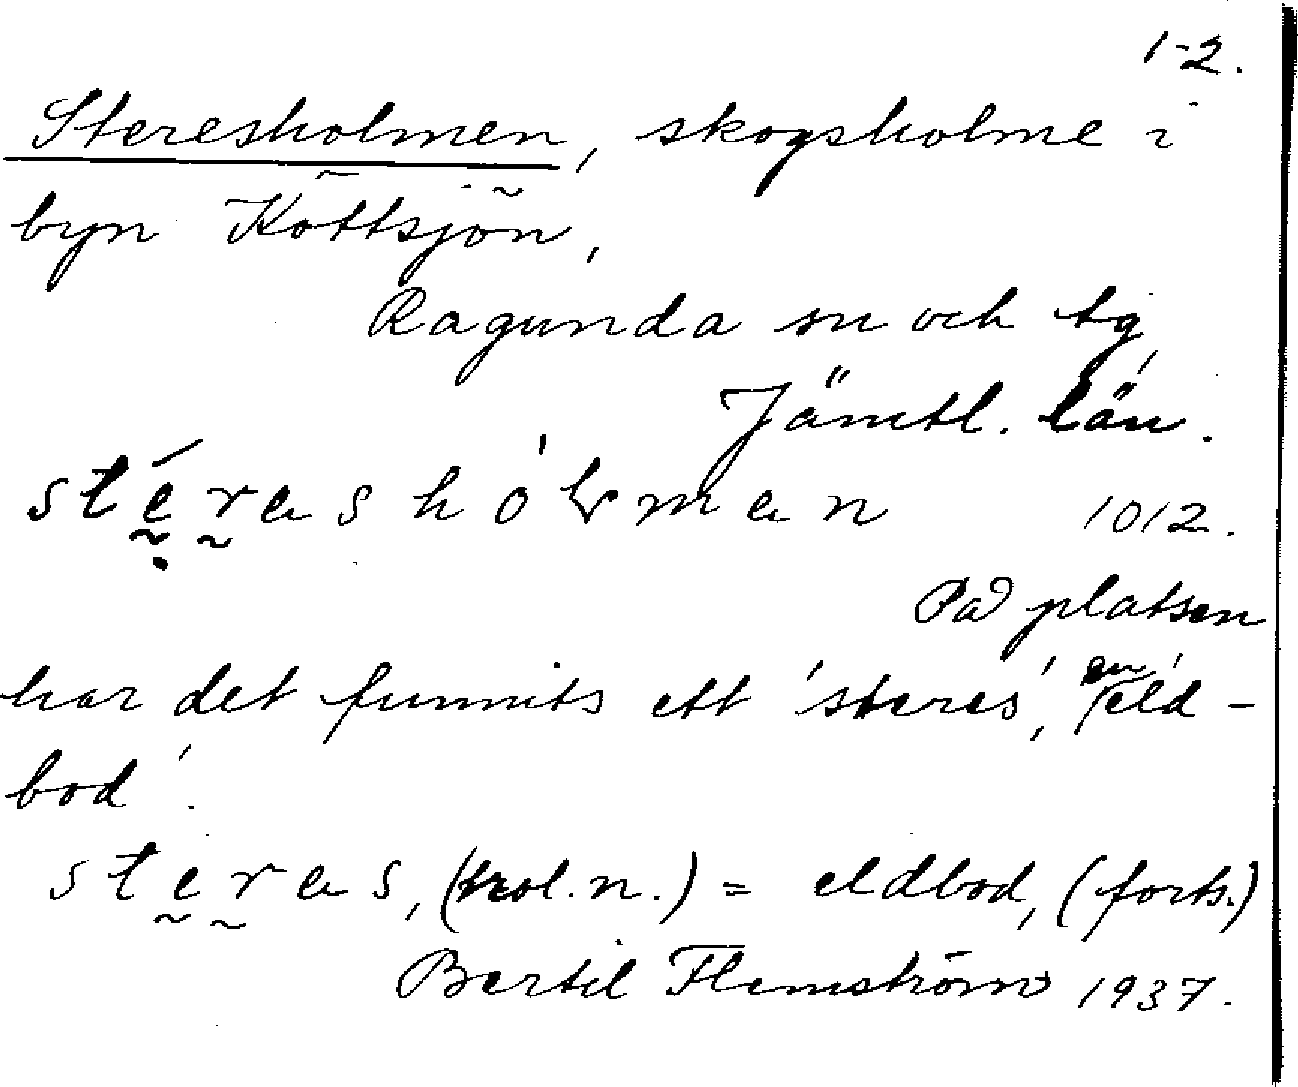 1-2.
Steresholmen, skogsholme i
byn Köttsjön,
Ragunda sn och tg,
Jämtl. län.
stéras hólmen 1012.
På platsen
har det funnits ett 'steres', en 'eld-
bod'.
steras, (trol. n.) = eldbod, (forts.)
Bertil Flemström 1937.